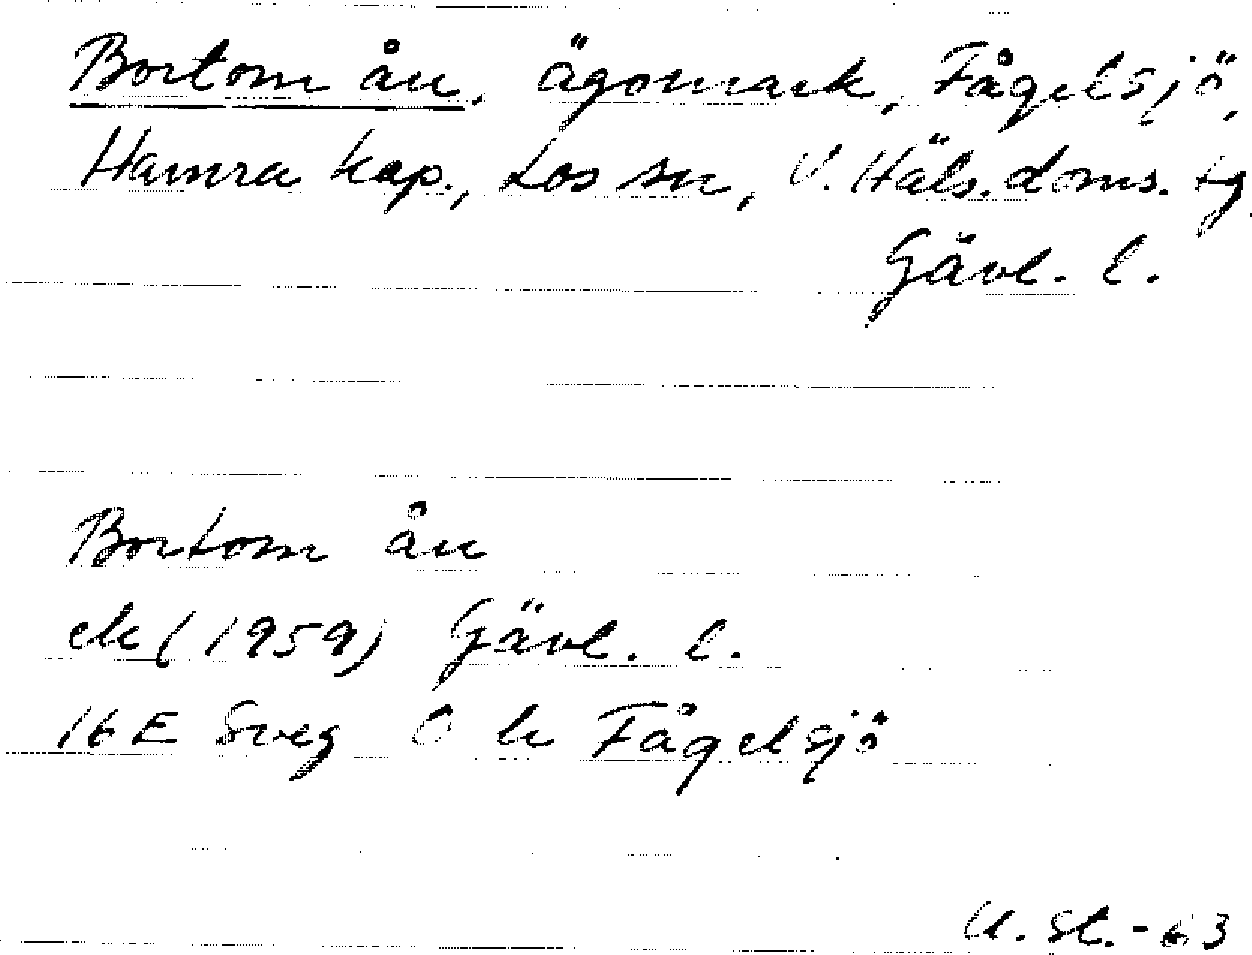 Bortom ån, ägomark, Fågelsjö,
Hamra kap., Los sn, V. Häls. doms. tg
Gävl. l.
Bortom ån
ek (1959) Gävl. l.
16E Sveg 0 h Fågelsjö
U. St. -63